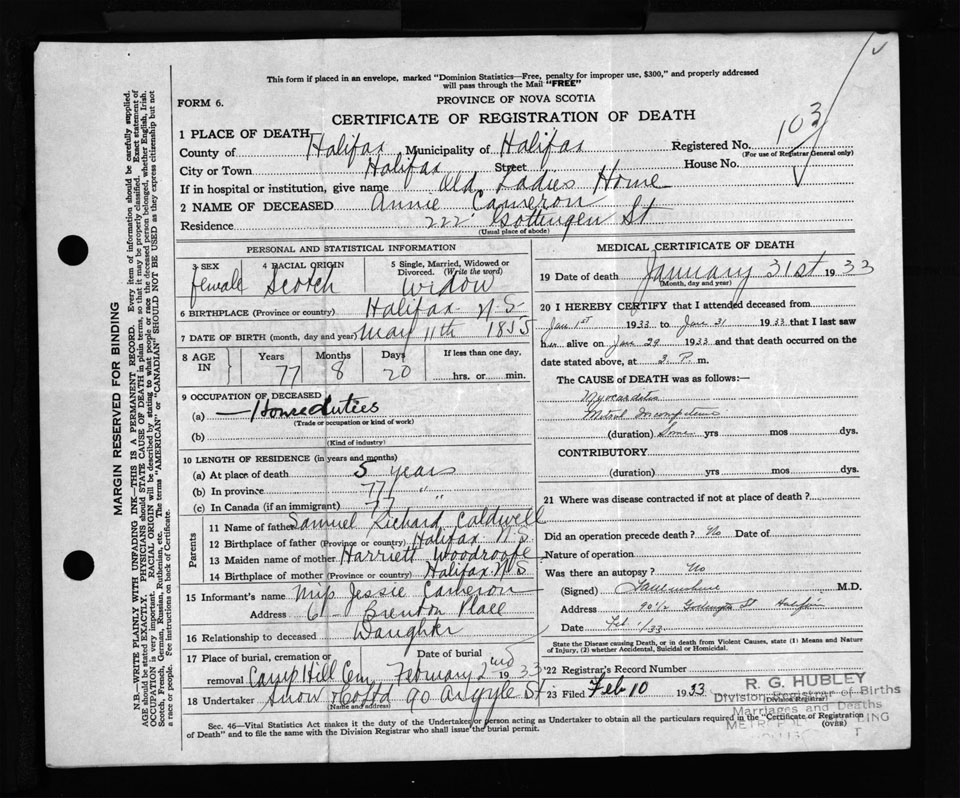 This form if placed in an envelope, marked "Dominion Statistics—Free, penalty for improper use, $300," and properly addressed
will pass through the Mail "FREE"
FORM 6.
PROVINCE OF NOVA SCOTIA
CERTIFICATE OF REGISTRATION OF DEATH
1 PLACE OF DEATH
County of Halifax Municipality of Halifax Registered No. 103
(For use of Registrar General only)
City or Town Halifax Street House No.
If in hospital or institution, give name Old Ladies Home
2 NAME OF DECEASED Annie Cameron
Residence 222 Gottingen St
(Usual place of abode)
PERSONAL AND STATISTICAL INFORMATION
3 SEX 4 RACIAL ORIGIN 5 Single, Married, Widowed or Divorced. (Write the word)
female Scotch Widow
6 BIRTHPLACE (Province or country) Halifax N.S.
7 DATE OF BIRTH (month, day and year) May 11th 1855
8 AGE IN Years Months Days If less than one day.
77 8 20 hrs. or min.
9 OCCUPATION OF DECEASED
(a) — Home duties
(Trade or occupation or kind of work)
(b)
(Kind of industry)
10 LENGTH OF RESIDENCE (in years and months)
(a) At place of death 5 years
(b) In province 77 " "
(c) In Canada (if an immigrant) 77
Parents
11 Name of father Samuel Richard Caldwell
12 Birthplace of father (Province or country) Halifax N.S.
13 Maiden name of mother Harriett Woodroofe
14 Birthplace of mother (Province or country) Halifax N.S
15 Informant's name Miss Jessie Cameron
Address 6 Brenton Place
16 Relationship to deceased Daughter
17 Place of burial, cremation or removal Date of burial
Camp Hill Cem. February 2nd 1933
18 Undertaker Snow & Co Ltd 90 Argyle St
(Name and address)
MEDICAL CERTIFICATE OF DEATH
19 Date of death January 31st 1933
(Month, day and year)
20 I HEREBY CERTIFY that I attended deceased from
Jan 1st 1933 to Jan 31 1933 that I last saw
her alive on Jan 29 1933 and that death occurred on the
date stated above, at 3. P. m.
The CAUSE of DEATH was as follows:—
Myocarditis
Mitral Incompetence
(duration) Some yrs mos dys.
CONTRIBUTORY.
(duration) yrs mos dys.
21 Where was disease contracted if not at place of death?
Did an operation precede death? No Date of
Nature of operation
Was there an autopsy? No
(Signed) M.D.
Address 90 1/2 Gottingen St Halifax
Date Feb 1/33
State the Disease causing Death, or in death from Violent Causes, state (1) Means and Nature
of Injury, (2) whether Accidental, Suicidal or Homicidal.
22 Registrar's Record Number
23 Filed Feb 10 1933
(Division Registrar)
R. G. HUBLEY
Division Registrar of Births
Marriages and Deaths
Sec. 46—Vital Statistics Act makes it the duty of the Undertaker or person acting as Undertaker to obtain all the particulars required in the "Certificate of Registration
of Death" and to file the same with the Division Registrar who shall issue the burial permit.
(OVER)
MARGIN RESERVED FOR BINDING
N.B.—WRITE PLAINLY WITH UNFADING INK—THIS IS A PERMANENT RECORD. Every item of information should be carefully supplied.
AGE should be stated EXACTLY. PHYSICIANS should STATE CAUSE OF DEATH in plain terms, so that it may be properly classified. Exact statement of
OCCUPATION is very important. RACIAL ORIGIN will be described by stating to what people or race the deceased person belonged, whether English, Irish,
Scotch, French, German, Russian, Ruthenian, etc. The terms "AMERICAN" or "CANADIAN" SHOULD NOT BE USED as they express citizenship but not
a race or people. See instructions on back of Certificate.